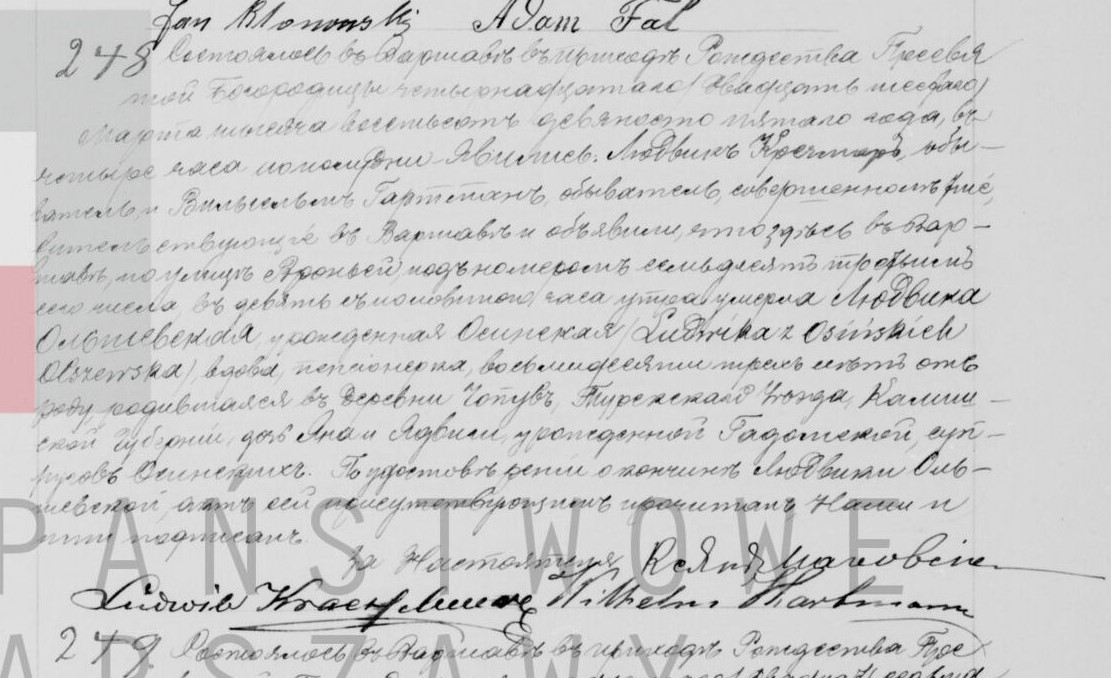 Jan Klonowski Adam Fal
248 Состоялось въ Варшавѣ въ приходѣ Рождества Пресвя
той Богородицы четырнадцатаго (двадцать шестаго)
Марта тысяча восемьсотъ девяносто пятаго года, въ
четыре часа пополудни. Явились: Людвикъ обы-
ватель, и Вильгельмъ Гартманъ, обыватель, совершеннолѣтніе,
жительствующіе въ Варшавѣ и объявили, что здѣсь въ Вар-
шавѣ, по улицѣ подъ номеромъ семьдесятъ третьимъ
сего числа, въ девять съ половиною часа утра умерла Людвика
Ольшевская, урожденная Осинская (Ludwika z Osińskich
Olszewska), вдова, пенсіонерка, восемидесяти трехъ лѣтъ отъ
роду, родившаяся въ деревни Турекскаго Уѣзда, Калиш-
ской Губерніи, дочь Яна и Ядвиги, урожденной Гадомской, суп-
руговъ Осинскихъ. По удостовѣреніи о кончинѣ Людвики Оль-
шевской, актъ сей присутствующимъ прочитанъ Нами и
ими подписанъ.
За Настоятеля
Ludwik Wilhelm Hartmann
249 Состоялось въ Варшавѣ въ приходѣ Рождества Прес
PAŃSTWOWE
WARSZAWY